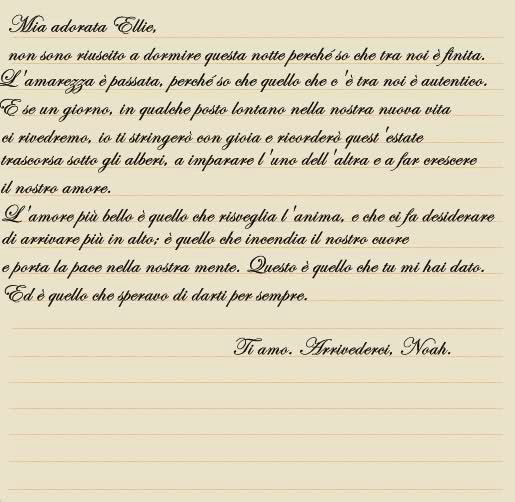 Mia adorata Ellie,
non sono riuscito a dormire questa notte perché so che tra noi è finita.
L'amarezza è passata, perché so che quello che c'è tra noi è autentico.
E se un giorno, in qualche posto lontano nella nostra nuova vita
ci rivedremo, io ti stringerò con gioia e ricorderò quest'estate
trascorsa sotto gli alberi, a imparare l'uno dell'altra e a far crescere
il nostro amore.
L'amore più bello è quello che risveglia l'anima, e che ci fa desiderare
di arrivare più in alto; è quello che incendia il nostro cuore
e porta la pace nella nostra mente. Questo è quello che tu mi hai dato.
Ed è quello che speravo di darti per sempre.
Ti amo. Arrivederci, Noah.